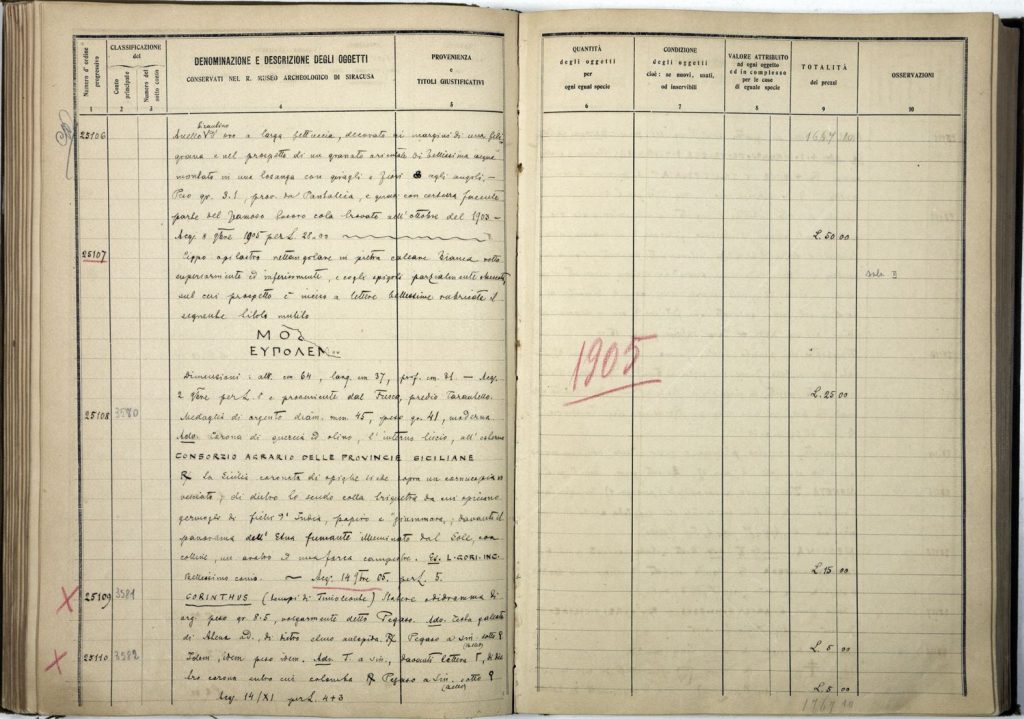 Numero d'ordine progressivo
CLASSIFICAZIONE del
Conto principale
Numero del sotto conto
DENOMINAZIONE E DESCRIZIONE DEGLI OGGETTI
CONSERVATI NEL R. MUSEO ARCHEOLOGICO DI SIRACUSA
PROVENIENZA
e
TITOLI GIUSTIFICATIVI
1 2 3 4 5
25106
Anello oro a larga fettuccia, decorato ai margini di una fili
grana e nel prospetto di un granato orientale di bellissima acqua
montato in una losanga con e fiori agli angoli. —
Peso gr. 3.1, prov. da Pantalica, e quasi con certezza facente
parte del famoso tesoro colà trovato nell'ottobre del 1903 —
Acq. 8 9bre 1905 per L. 28.00
25107
Cippo a pilastro rettangolare in pietra calcare bianca rotto
superiormente ed inferiormente, e cogli spigoli parzialmente
sul cui prospetto è inciso a lettere bellissime rubricate il
seguente titolo mutilo
ΜΟΣ
ΕΥΠΟΛΕΜ
Dimensioni: alt. cm 64, larg. cm 37, prof. cm 31 — Acq.
2 9bre per L. e proveniente dal Fusco, predio Tarantello.
25108 3580
Medaglia di argento diam. mm. 45, peso gr. 41, moderna.
Ado. Corona di quercia ed olivo, l'interno liscio, all'esterno
CONSORZIO AGRARIO DELLE PROVINCIE SICILIANE
℞ la Sicilia coronata di spighe siede sopra un cornucopia ro
vesciato; di dietro lo scudo colla triquetra da cui spiccano
germogli di fichi d'India, papiro e "giummara"; davanti il
panorama dell'Etna fumante illuminato dal Sole, con
colline, un aratro e una campestre. Es. L·GORI·INC·
Bellissimo conio. — Acq. 14 9bre 05. per L. 5.
25109 3581
CORINTHUS (tempi di Timoleonte) Statere o didramma di
arg. peso gr. 8.5, volgarmente detto Pegaso. Ado. Testa galeata
di Atena a d., di dietro ℞ Pegaso a sin. sotto Ϙ
25110 3582
Idem, idem peso idem. Ado. T. a sin., davanti lettera Γ, di die
tro corona entro cui colomba ℞ Pegaso a sin. sotto Ϙ
Acq. 14/XI per L. 4+3
QUANTITÀ
degli oggetti
per
ogni egual specie
CONDIZIONE
degli oggetti
cioè: se nuovi, usati,
od inservibili
VALORE ATTRIBUITO
ad ogni oggetto
ed in complesso
per le cose
di eguale specie
TOTALITÀ
dei prezzi
OSSERVAZIONI
6 7 8 9 10
1647 10
L. 50 00
sala II
1905
L. 25 00
L. 15 00
L. 5 00
L. 5 00
1747 10